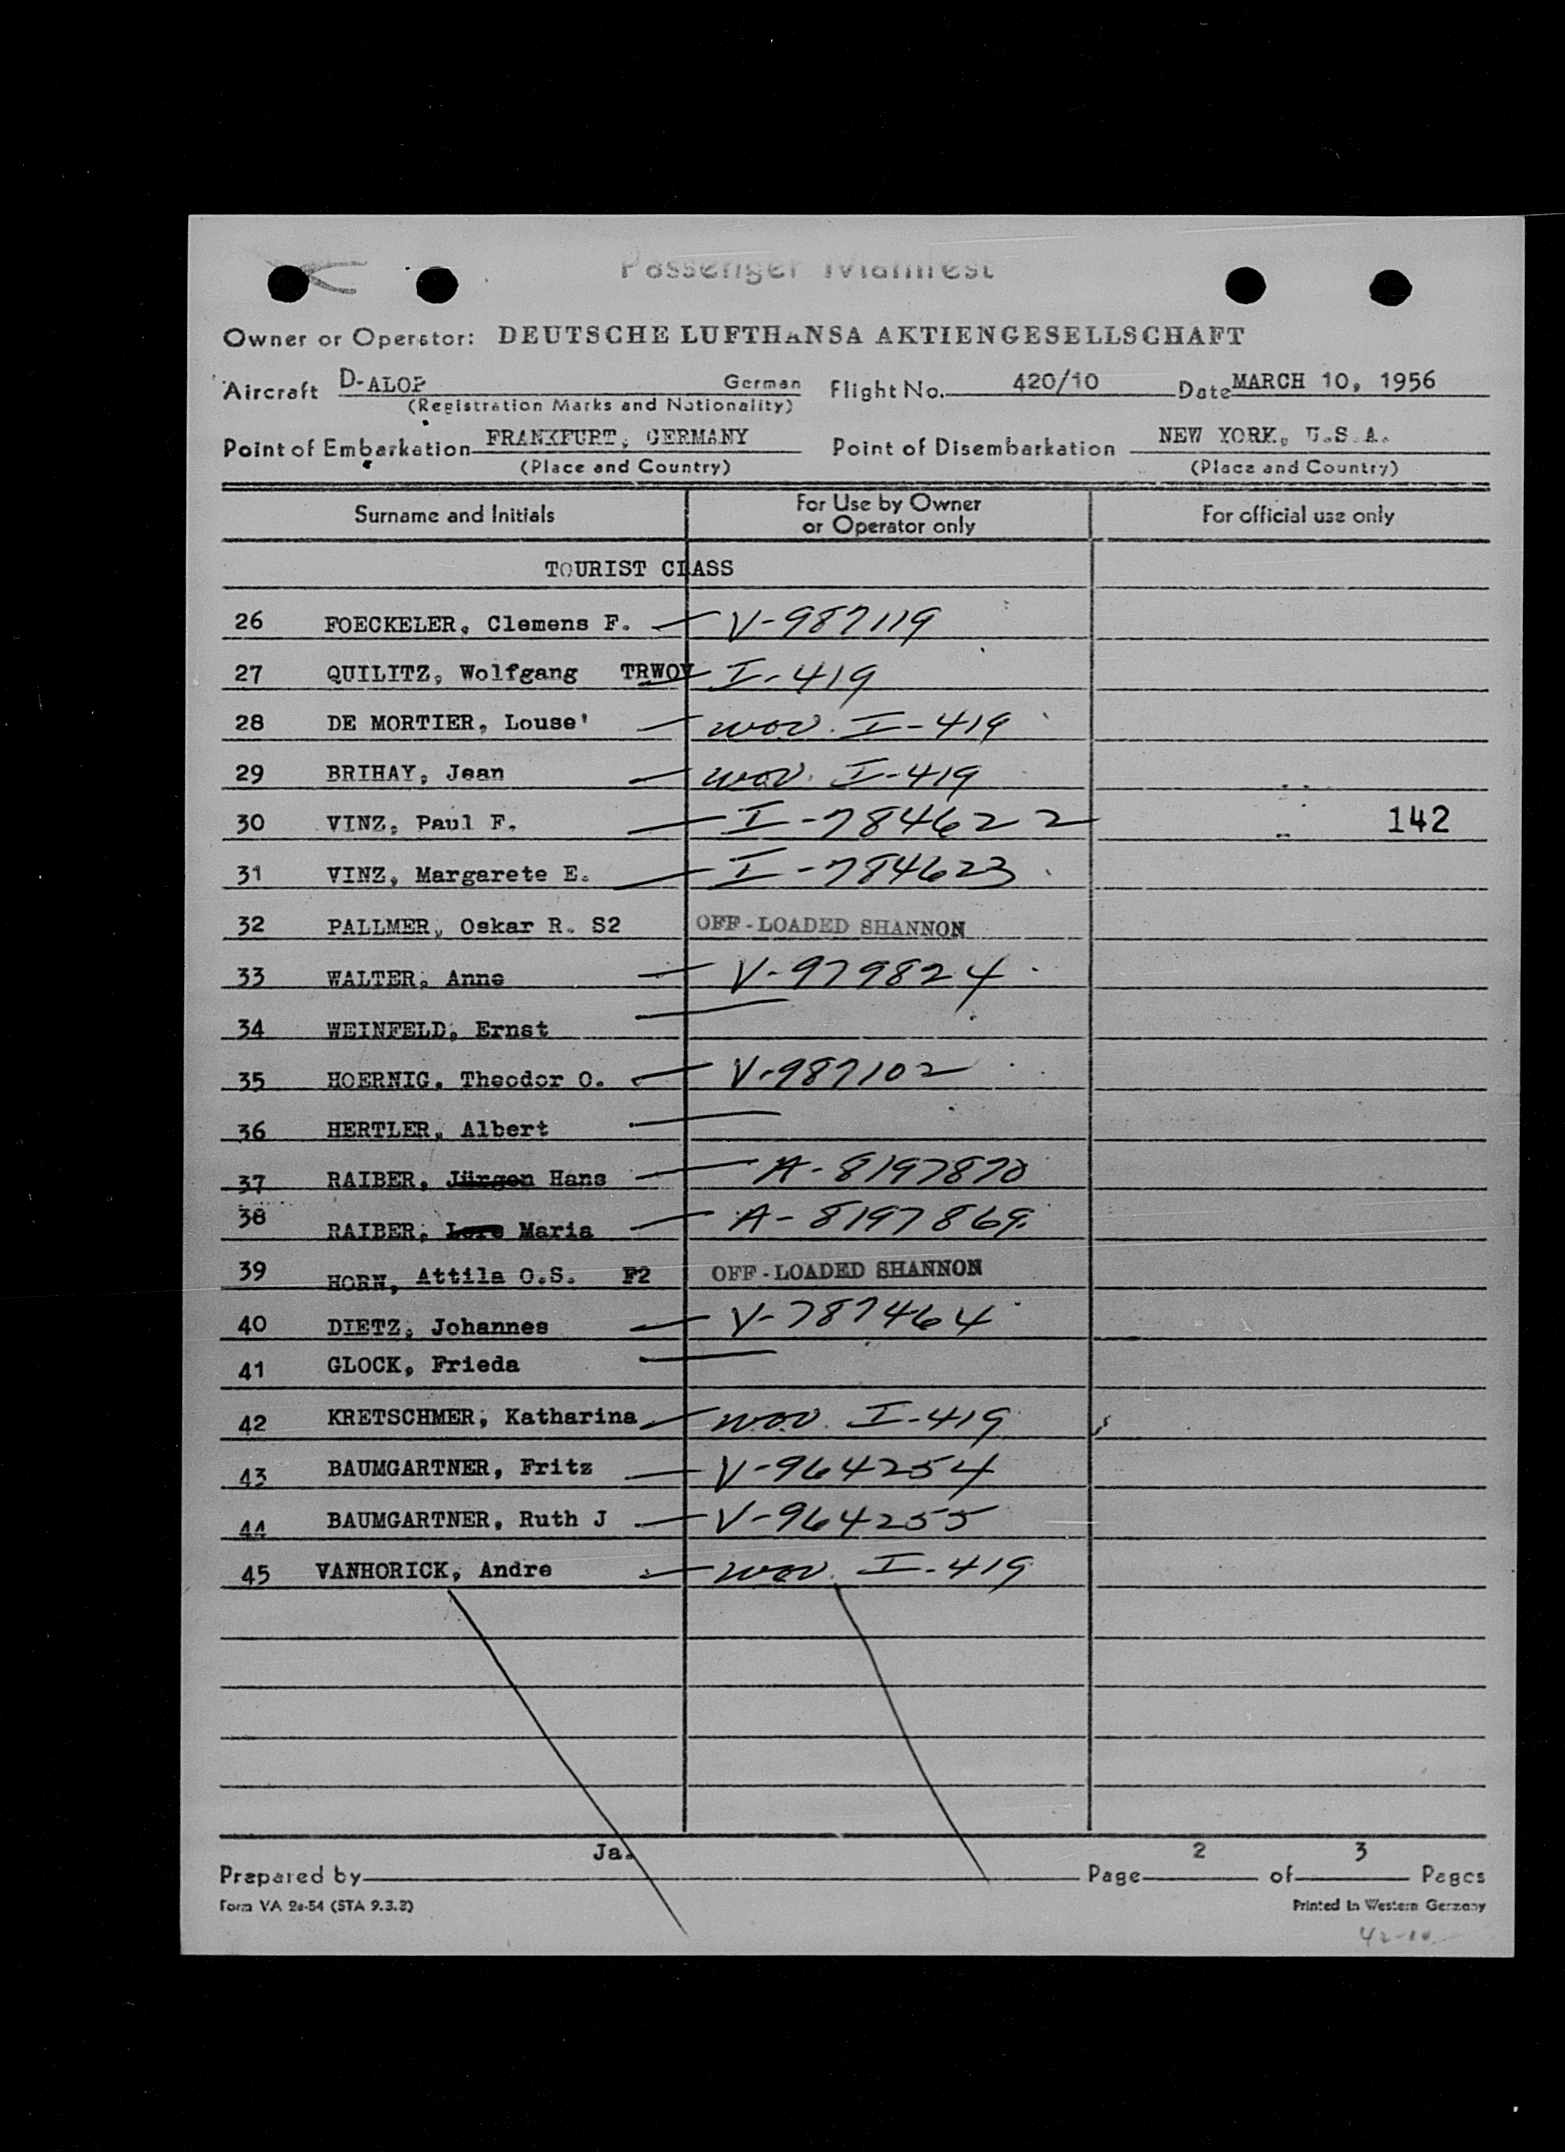 Passenger Manifest
Owner or Operator: DEUTSCHE LUFTHANSA AKTIENGESELLSCHAFT
Aircraft D-ALOP German Flight No. 420/10 Date MARCH 10, 1956
(Registration Marks and Nationality)
Point of Embarkation FRANKFURT, GERMANY Point of Disembarkation NEW YORK, U.S.A.
(Place and Country) (Place and Country)
Surname and Initials For Use by Owner or Operator only For official use only
TOURIST CLASS
26 FOECKELER, Clemens F. V-987119
27 QUILITZ, Wolfgang TRWOV I-419
28 DE MORTIER, Louse' wov. I-419
29 BRIHAY, Jean wov. I-419
30 VINZ, Paul F. I-784622 142
31 VINZ, Margarete E. I-784623
32 PALLMER, Oskar R. S2 OFF-LOADED SHANNON
33 WALTER, Anne V-979824
34 WEINFELD, Ernst
35 HOERNIG, Theodor O. V-987102
36 HERTLER, Albert
37 RAIBER, Jürgen Hans A-8197870
38 RAIBER, Lore Maria A-8197869
39 HORN, Attila O.S. F2 OFF-LOADED SHANNON
40 DIETZ, Johannes V-787464
41 GLOCK, Frieda
42 KRETSCHMER, Katharina wov. I-419
43 BAUMGARTNER, Fritz V-964254
44 BAUMGARTNER, Ruth J V-964255
45 VANHORICK, Andre wov. I-419
Prepared by Ja. Page 2 of 3 Pages
Form VA 2a-54 (STA 9.3.2) Printed in Western Germany